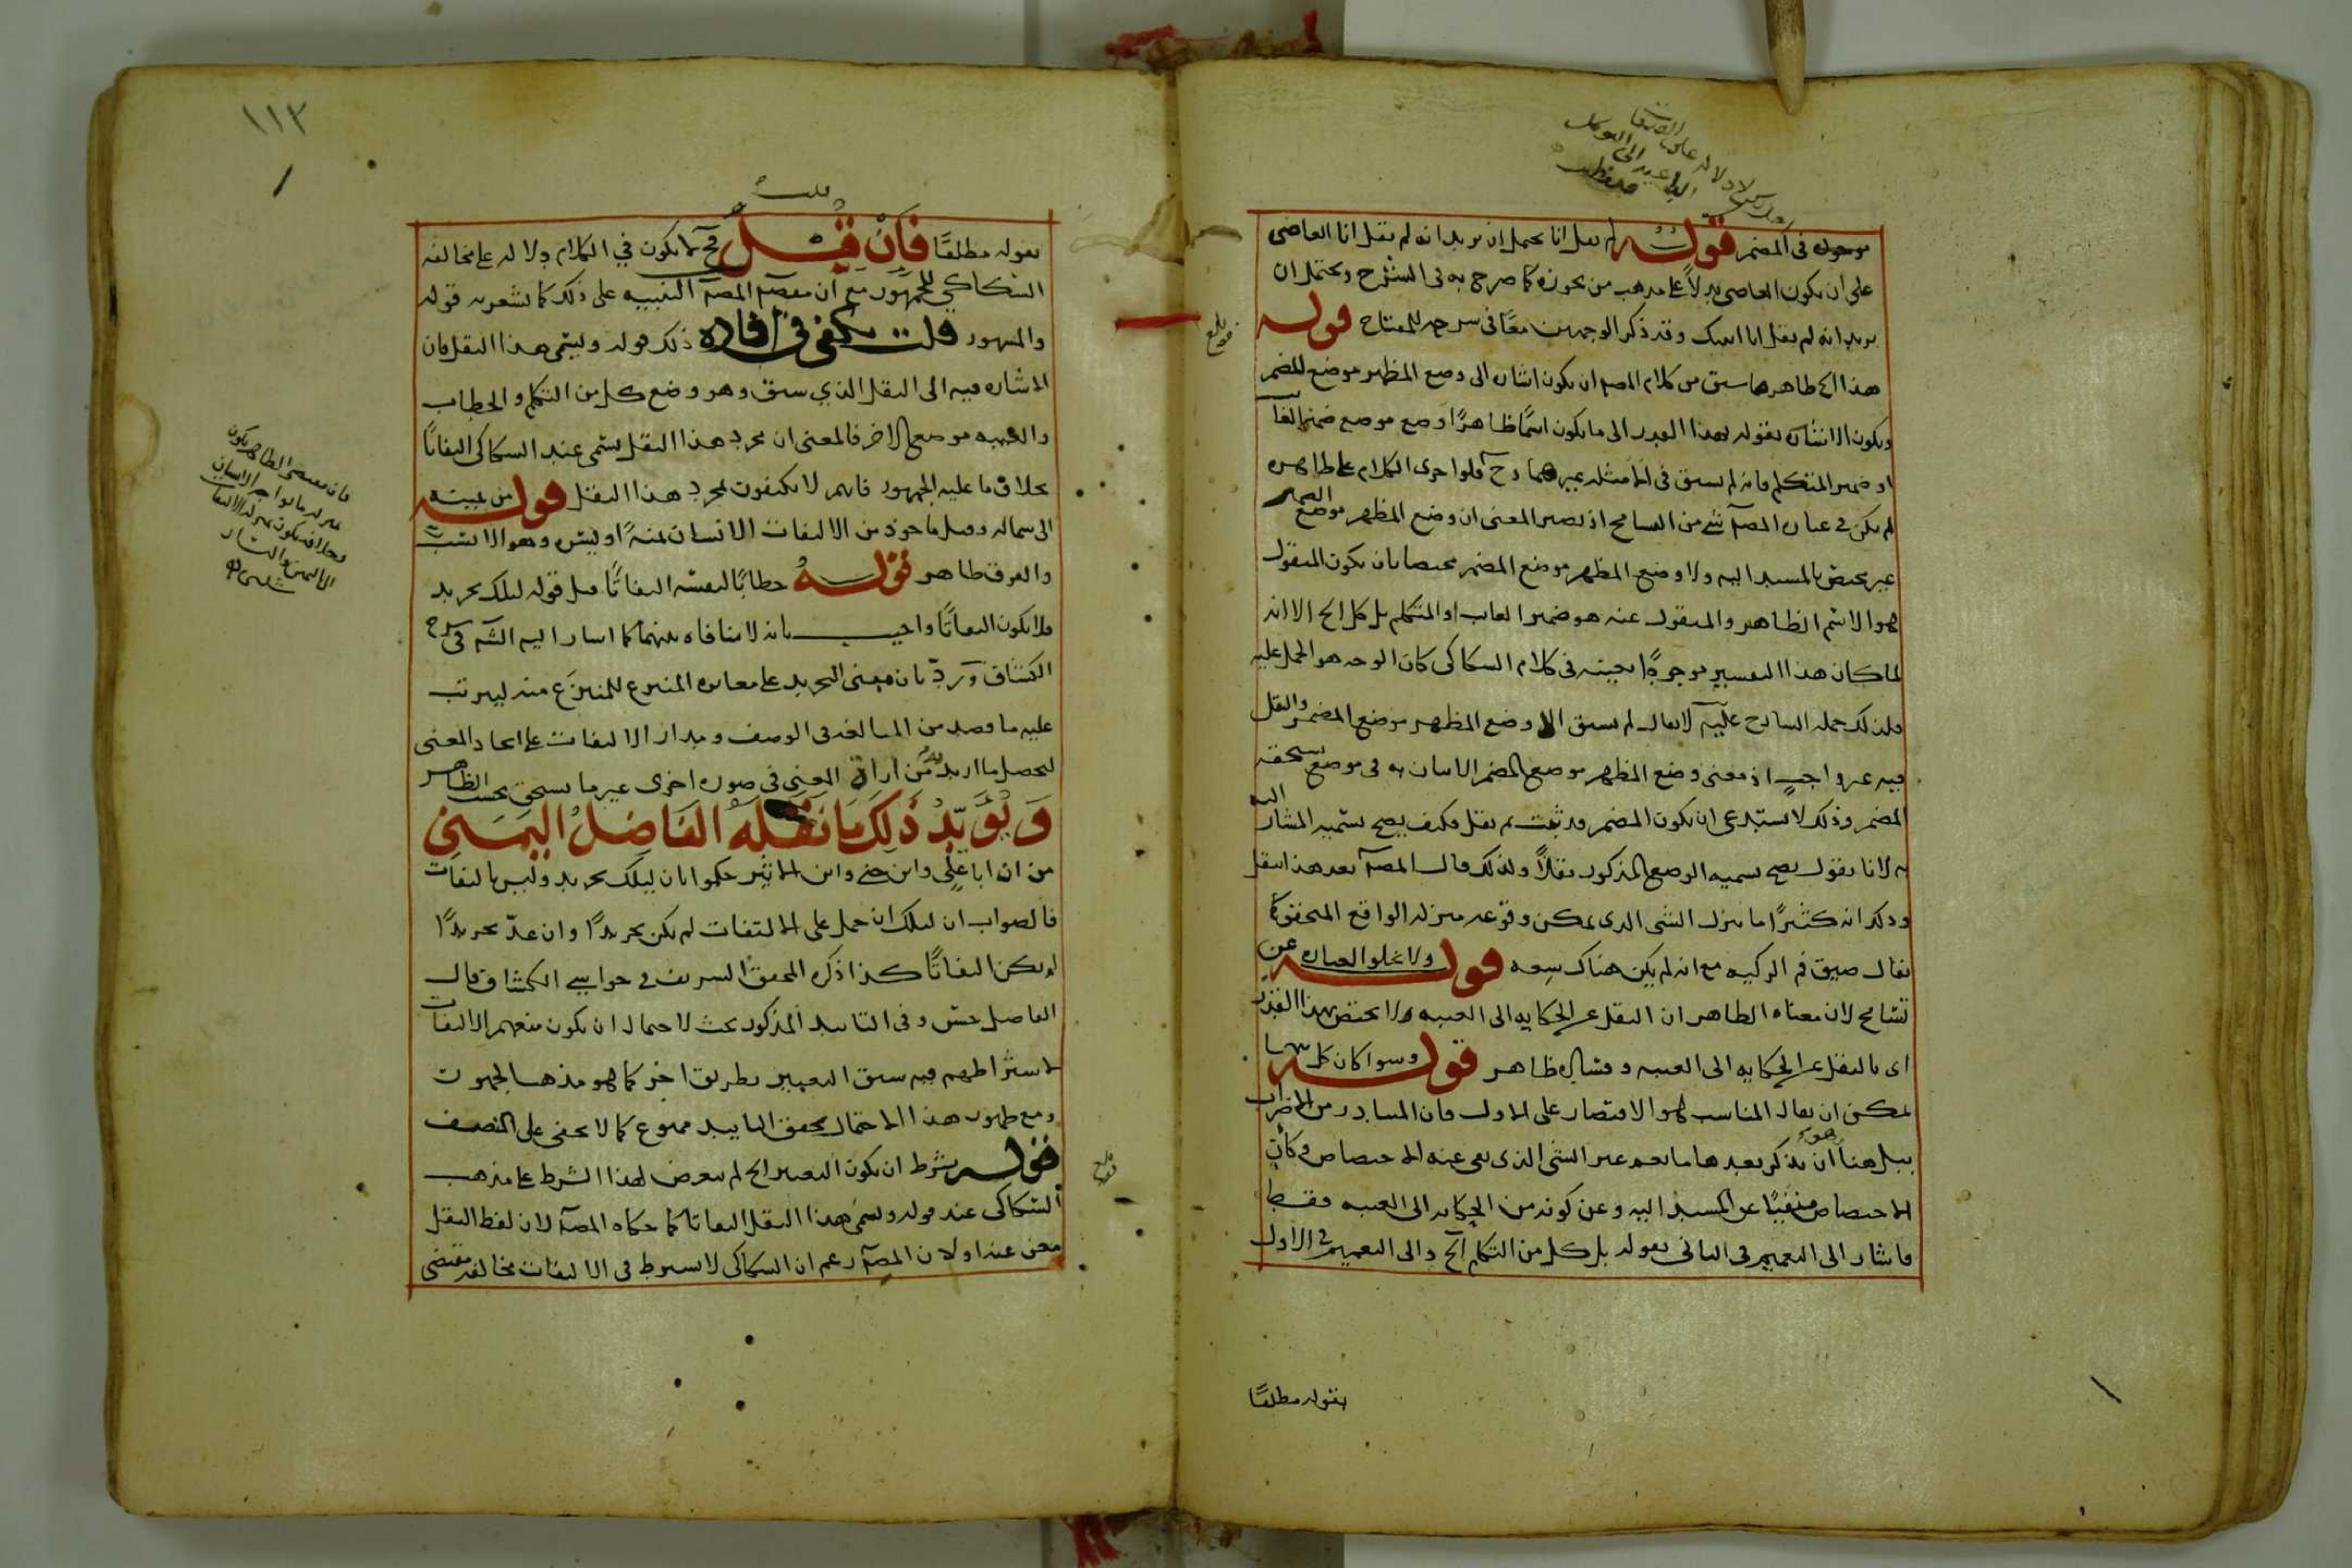 موجود فى المضمر قوله لم يقل انا يحتمل ان يريد انه لم يقل انا العاصى
على ان يكون العاصى بدلاً على مذهب من يجوزه كما صرح به فى الشرح ويحتمل ان
يريد انه لم يقل انا اتيتك وقد ذكر الوجهين معًا فى شرحه للمفتاح قوله
هذا الخ ظاهر ما سبق من كلام المصـ ان يكون اشارة الى وضع المظهر موضع المضمر
ويكون الاشارة بقوله بهذا القدر الى ما يكون اسمًا ظاهرًا وضع موضع ضمير الغائب
او ضمير المتكلم فانه لم يسبق فى امثله غيرهما وح فلو اجرى الكلام على ظاهره
لم يكن فى عبارة المصـ شئ من التسامح اذ يصير المعنى ان وضع المظهر موضع المضمر
غير مختص بالمسند اليه ولا وضع المظهر موضع المضمر مختصا بان يكون المنقول
هو الاسم الظاهر والمنقول عنه هو ضمير الغائب او المتكلم بل كل الخ الا انه
لما كان هذا التفسير موجودًا بعينه فى كلام السكاكى كان الوجه هو الحمل عليه
فلذلك حمله الشارح عليه لا يقال لم يسبق الا وضع المظهر موضع المضمر والنقل
فيه غير واجب اذ معنى وضع المظهر موضع المضمر الاتيان به فى موضع يستحقه
المضمر وذلك لا يستدعى ان يكون المضمر قد ثبت ثم نقل فكيف يصح تسمية المشار اليه
به لانا نقول يصح تسمية الوضع المذكور نقلاً ولذلك قال المصـ بعد هذا النقل
وذلك انه كثيرًا ما ينزل الشئ الذى يمكن وقوعه منزلة الواقع المتحقق كما
يقال ضيق فم الركية مع انه لم يكن هناك سعة قوله ولا تخلوا العبارة عن
تسامح لان معناه الظاهر ان النقل عن الحكاية الى الغيبة ولا يختص بهذا القدر
اى بالنقل عن الحكاية الى الغيبة وفساده ظاهر قوله وسوا كان كل منهما
يمكن ان يقال المناسب هو الاقتصار على الاول فان المتبادر من الاضراب
ببل هنا ان يذكر بعدها ما يعم غير الشئ الذى نفى عنه الاختصاص وكان
الاختصاص منفيًا عن المسند اليه وعن كونه من الحكاية الى الغيبة فقط
فاشار الى التعميم فى الثانى بقوله بل كل من التكلم الخ والى التعميم فى الاول
بقوله مطلقًا
١١٣
بقوله مطلقًا فان قيل فح لا يكون في الكلام دلالة على مخالفة
السكاكي للجمهور مع ان مقصـ المصـ التنبيه على ذلك كما يشعر به قوله
والمشهور قلت يكفى فى افادة ذلك قوله ويسمى هذا النقل فان
الاشارة فيه الى النقل الذي سبق وهو وضع كل من التكلم والخطاب
والغيبة موضع الاخر فالمعنى ان مجرد هذا النقل يسمى عند السكاكى التفاتًا
بخلاف ما عليه الجمهور فانهم لا يكتفون بمجرد هذا النقل قوله من يمينه
الى شماله وقيل ماخوذ من الالتفات الانسان يمنة او يسره وهو الانسب
والفرق ظاهر قوله خطابًا لنفسه التفاتًا قيل قوله ليلك تجريد
فلا يكون التفاتًا واجيب بانه لا منافاة بينهما كما اشار اليه الشـ فى شرح
الكشاف ورد بان مبنى التجريد على مغايرة المنتزع للمنتزع منه ليترتب
عليه ما قصد من المبالغة فى الوصف ومدار الالتفات على اتحاد المعنى
ليحصل ما اريد به من اراة المعنى فى صورة اخرى غير ما يستحق بحسب الظاهر
وَيُؤَيِّدُ ذَلِكَ مَا نَقَلَهُ الفَاضِلُ اليَمَنِي
من ان ابا على وابن جنى وابن الاثير حكموا بان ليلك تجريد وليس بالتفات
فالصواب ان ليلك ان حمل على الالتفات لم يكن تجريدًا وان عدّ تجريدًا
لم يكن التفاتًا كذا ذكره المحقق الشريف فى حواشي الكشاف قال
الفاضل حسن وفى التاييد المذكور بحث لاحتمال ان يكون منعهم الالتفات
لاشتراطهم فيه سبق التعبير بطريق اخر كما هو مذهب الجمهور
ومع ظهور هذا الاحتمال تحقق التاييد ممنوع كما لا يخفى على المنصف
قوله بشرط ان يكون التعبير الخ لم يتعرض لهذا الشرط على مذهب
السكاكى عند قوله ويسمى هذا النقل التفاتا كما حكاه المصـ لان لفظ النقل
مغن عنه او لان المصـ زعم ان السكاكى لا يشترط فى الالتفات مخالفة مقتضى